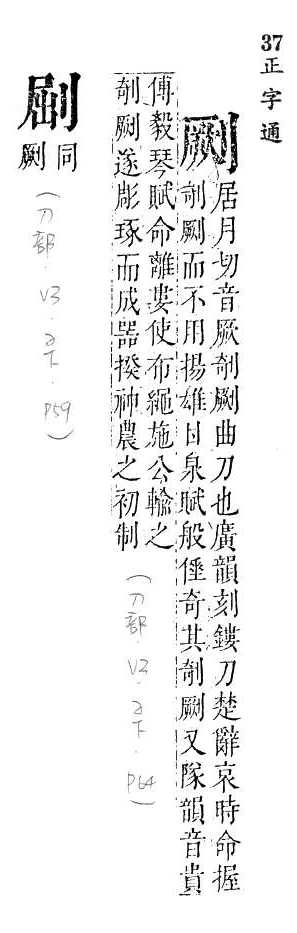 37正字通
劂
居月切音厥剞劂曲刀也廣韻刻鏤刀楚辭哀時命握
剞劂而不用揚雄甘泉賦般倕奇其剞劂又隊韻音貴
傅毅琴賦命離婁使布繩施公輸之
剞劂遂彫琢而成器揆神農之初制
(刀部.V2.子下.P64)
㔃
同
劂
(刀部.V3.子下.P59)